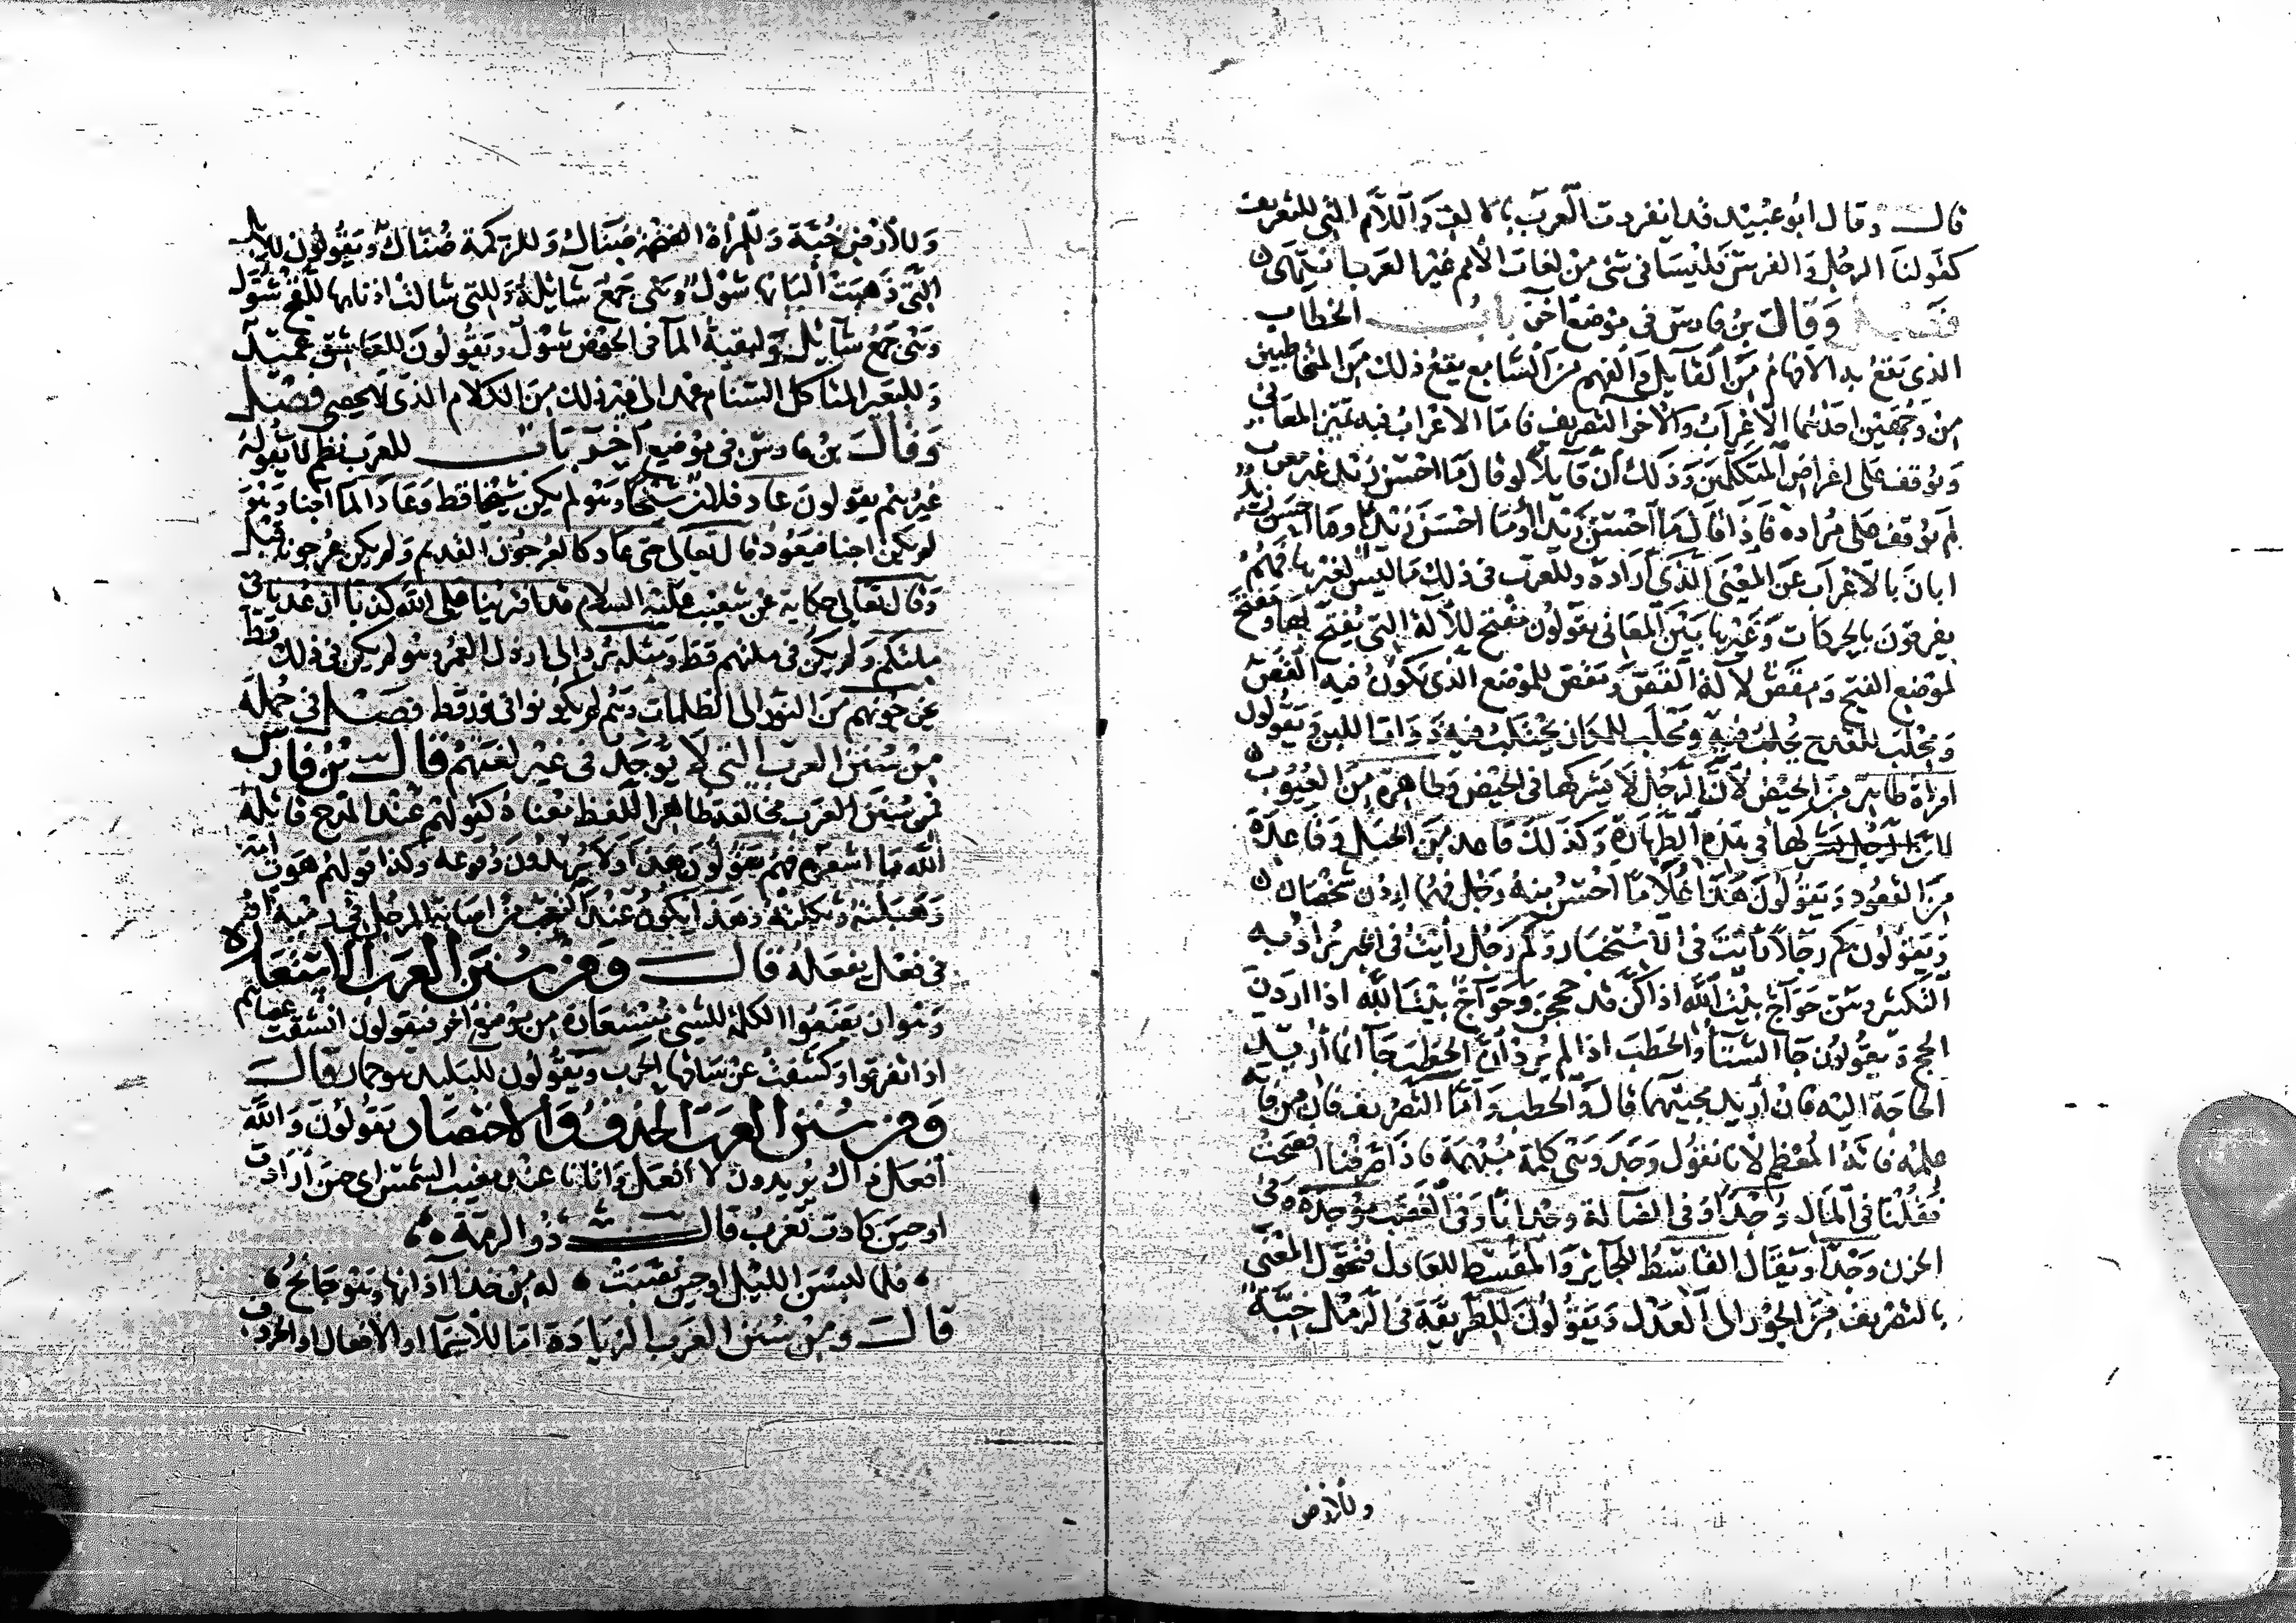 قال وقال ابو عبيد قد انفردت العرب بالالف واللام التي للتعريف
كقولنا الرجل والفرس فليسا في شئ من لغات الامم غير العرب انتهى
فصل وقال بن فارس في موضع آخر باب الخطاب
الذي يقع به الافهام من القايل والفهم من السامع يقع ذلك من المتخاطبين
من وجهين احدهما الاعراب والآخر التصريف فاما الاعراب فبه تميز المعاني
ويوقف على اغراض المتكلمين وذلك ان قايلا لو قال ما احسن زيد غير معرب
لم يوقف على مراده فاذا قال ما احسن زيدا او ما احسن زيد او ما احسن زيد
ابان بالاعراب عن المعنى الذي اراده وللعرب في ذلك ما ليس لغيرها فهم
يفرقون بالحركات وغيرها بين المعاني يقولون مفتح للآلة التي يفتح بها ومفتح
لموضع الفتح ومقص لآلة القص ومقص للموضع الذي يكون فيه القص
ومحلب للقدح يحلب فيه ومحلب للمكان يحتلب فيه ذوات اللبن ويقولون
امرأة طاهر من الحيض لان الرجل لا يشركها في الحيض وطاهرة من العيوب
لان الرجل يشركها في هذه الطهارة وكذلك قاعد من الحبل وقاعدة
من القعود ويقولون هذا غلاما احسن منه رجل فهما اذن شخصان
ويقولون كم رجلا رأيت في الاستخبار وكم رجل رأيت في الخبر يراد به
التكثير وهن حواج بيت الله اذا كن قد حججن وحواج بيت الله اذا اردن
الحج ويقولون جآ الشتآ والحطب اذا لم يرد ان الحطب جآ انما اريد
الحاجة اليه فان اريد مجيئهما قال والحطب واما التصريف فان من فاته
علمه فاته المعظم لانا نقول وجد وهي كلمة مبهمة فاذا صرفنا افصحت
فقلنا في المال وجدا وفي الضآلة وجدانا وفي الغضب موجدة وفي
الحزن وجدا ويقال القاسط للجائر والمقسط للعادل فتحول المعنى
بالتصريف من الجور الى العدل ويقولون للطريقة في الرمل خبة
وللأرض
وللأرض خبة وللمرأة الضخمة ضناك وللزكمة ضناك ويقولون للابل
التي ذهبت البانها شول وهي جمع شآئلة وللتي شالت اذنابها للقح شول
وهي جمع شآئل ولبقية المآ في الحوض شول ويقولون للعاشق عميد
وللبعير المتاكل السنام عمد الى غير ذلك من الكلام الذي لا يحصى فصل
وقال بن فارس في موضع آخر باب للعرب نظم لا يقوله
غيرهم يقولون عاد فلان شيخا وهو لم يكن شيخا قط وعاد المآ آجنا وهو
لم يكن اجنا فيعود قال تعالى حتى عاد كالعرجون القديم ولم يكن عرجونا قبل
وقال تعالى حكاية عن شعيب عليه السلام قد افترينا على الله كذبا ان عدنا في
ملتكم ولم يكن في ملتهم قط ومثله يرد الى ارذل العمر وهو لم يكن في ذلك قط
يخرجونهم من النور الى الظلمات وهم لم يكونوا في نور قط فصل في جملة
من سنن العرب التي لا توجد في غير لغتهم قال بن فارس
فمن سنن العرب مخالفة ظاهر اللفظ معناه كقولهم عند المدح قاتله
الله ما اشعره فهم يقولون هذا ولا يريدون وقوعه وكذا قولهم هوت امه
وهبلته وثكلته وهذا يكون عند التعجب من اصابة الرجل في رميه او
في فعل يفعله قال ومن سنن العرب الاستعارة
وهو ان يضعوا الكلمة للشيئ مستعارة من موضع آخر فيقولون انشقت عصاهم
اذا تفرقوا وكشفت عن ساقها الحرب ويقولون للبليد هو حمار قال
ومن سنن العرب الحذف والاختصار يقولون والله
افعل ذاك يريدون لا افعل واتانا عند مغيب الشمس اي حين ارادت
او حين كادت تغرب قال ذو الرمة
فلما لبسن الليل او حين نصبت له من خذا آذانها وهو جانح
قال ومن سنن العرب الزيادة اما للاسمآ او الافعال او الحروف